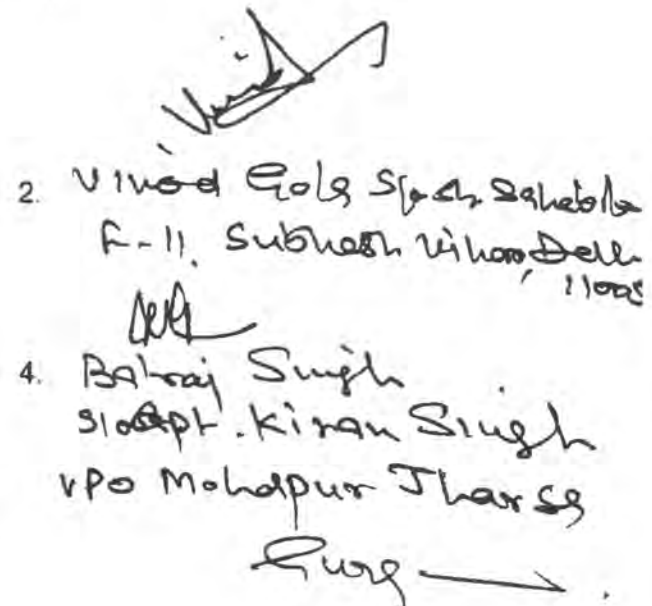 2. Vinod Gola S/o Sh.
F-11, Subhash Vihar, Delhi
4. Balraj Singh
S/o Capt. Kiran Singh
VPO Mohdpur Jharsa
Gurg